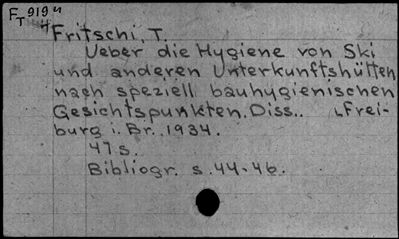 F 919 n
T "
Fritschi, T.
Ueber die Hygiene von Ski
und anderen Unterkunftshütten
nach speziell bauhygienischen
Gesichtspunkten. Diss.. Frei-
burg i. Br. 1934.
47 s.
Bibliogr. s. 44-46.